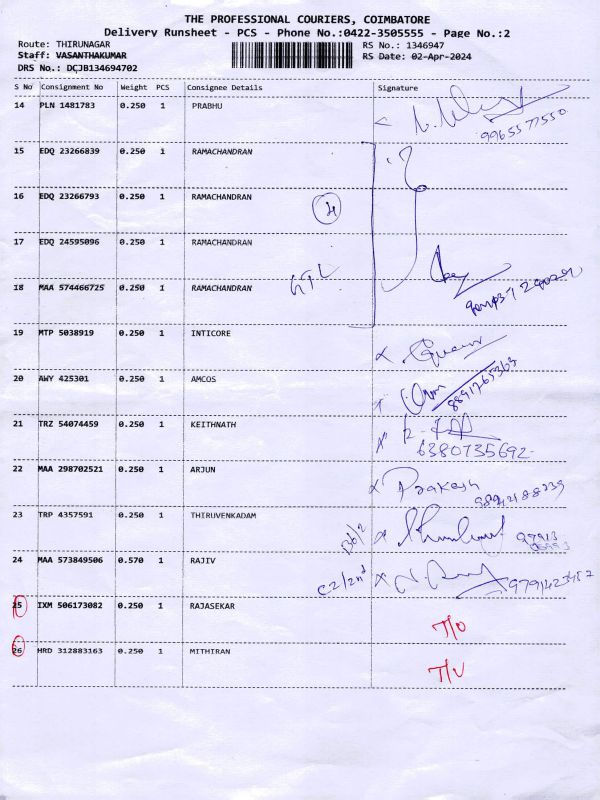 THE PROFESSIONAL COURIERS, COIMBATORE
Delivery Runsheet - PCS - Phone No.:0422-3505555 - Page No.:2
Route: THIRUNAGAR RS No.: 1346947
Staff: VASANTHAKUMAR RS Date: 02-Apr-2024
DRS No.: DCJB134694702
S No Consignment No Weight PCS Consignee Details Signature
14 PLN 1481783 0.250 1 PRABHU
9965577550
15 EDQ 23266839 0.250 1 RAMACHANDRAN
16 EDQ 23266793 0.250 1 RAMACHANDRAN
4
17 EDQ 24595096 0.250 1 RAMACHANDRAN
18 MAA 574466725 0.250 1 RAMACHANDRAN
19 MTP 5038919 0.250 1 INTICORE
20 AWY 425301 0.250 1 AMCOS
8891265363
21 TRZ 54074459 0.250 1 KEITHNATH
6380735692
22 MAA 298702521 0.250 1 ARJUN
Prakash
23 TRP 4357591 0.250 1 THIRUVENKADAM
24 MAA 573849506 0.570 1 RAJIV
25 IXM 506173082 0.250 1 RAJASEKAR
T/O
26 HRD 312883163 0.250 1 MITHIRAN
T/V